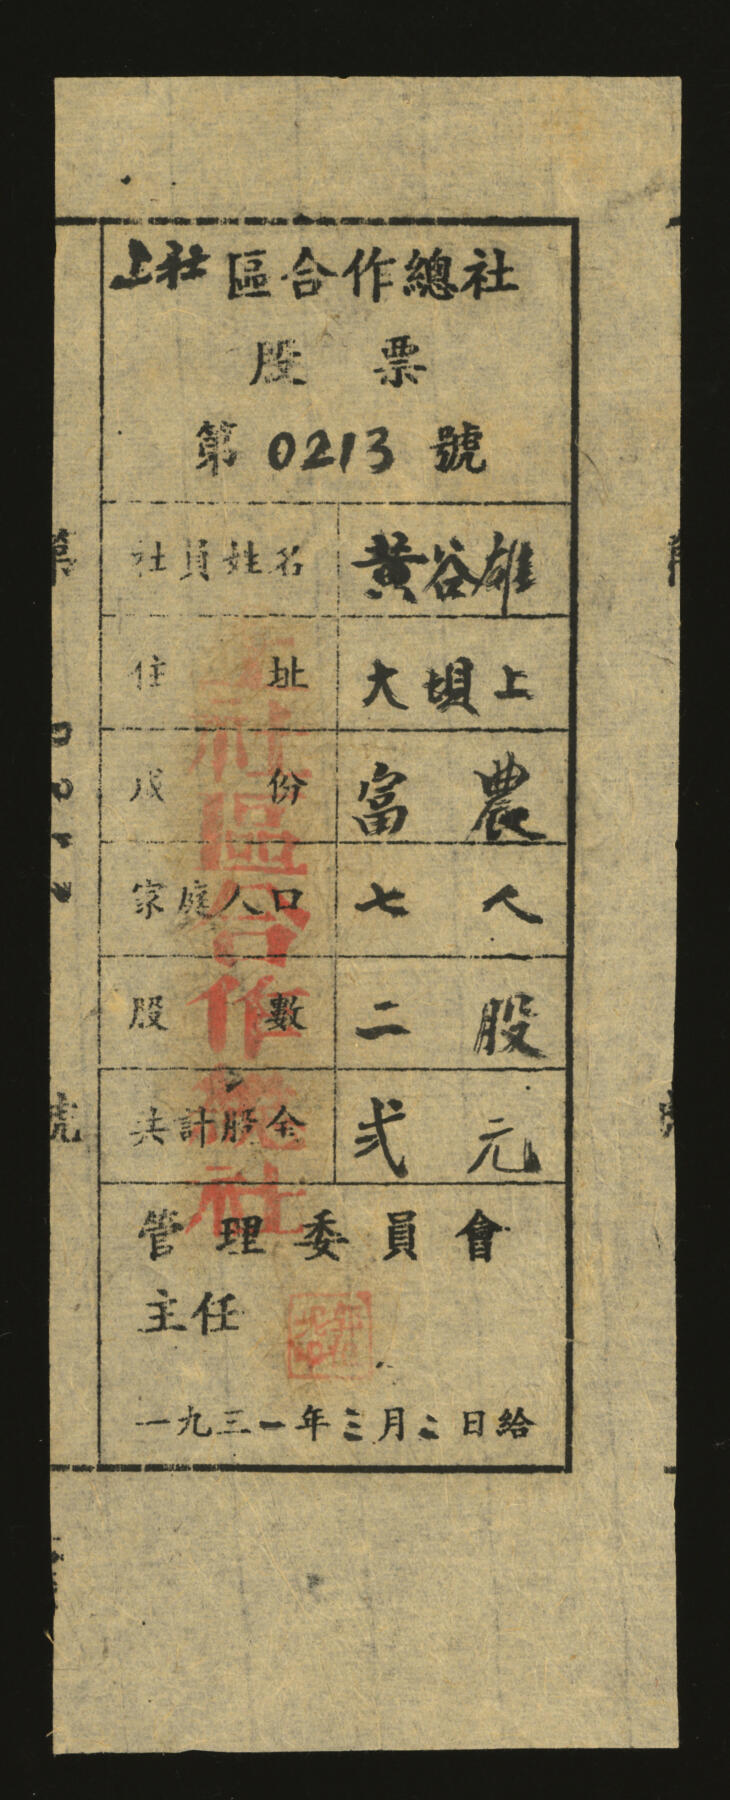 上社區合作總社
股票
第0213號
社員姓名 黃谷雄
住址 大垻上
成份 富農
家庭人口 七人
股數 二股
共計股金 弍元
管理委員會
主任
一九三一年三月二日給
上社區合作總社
第
號